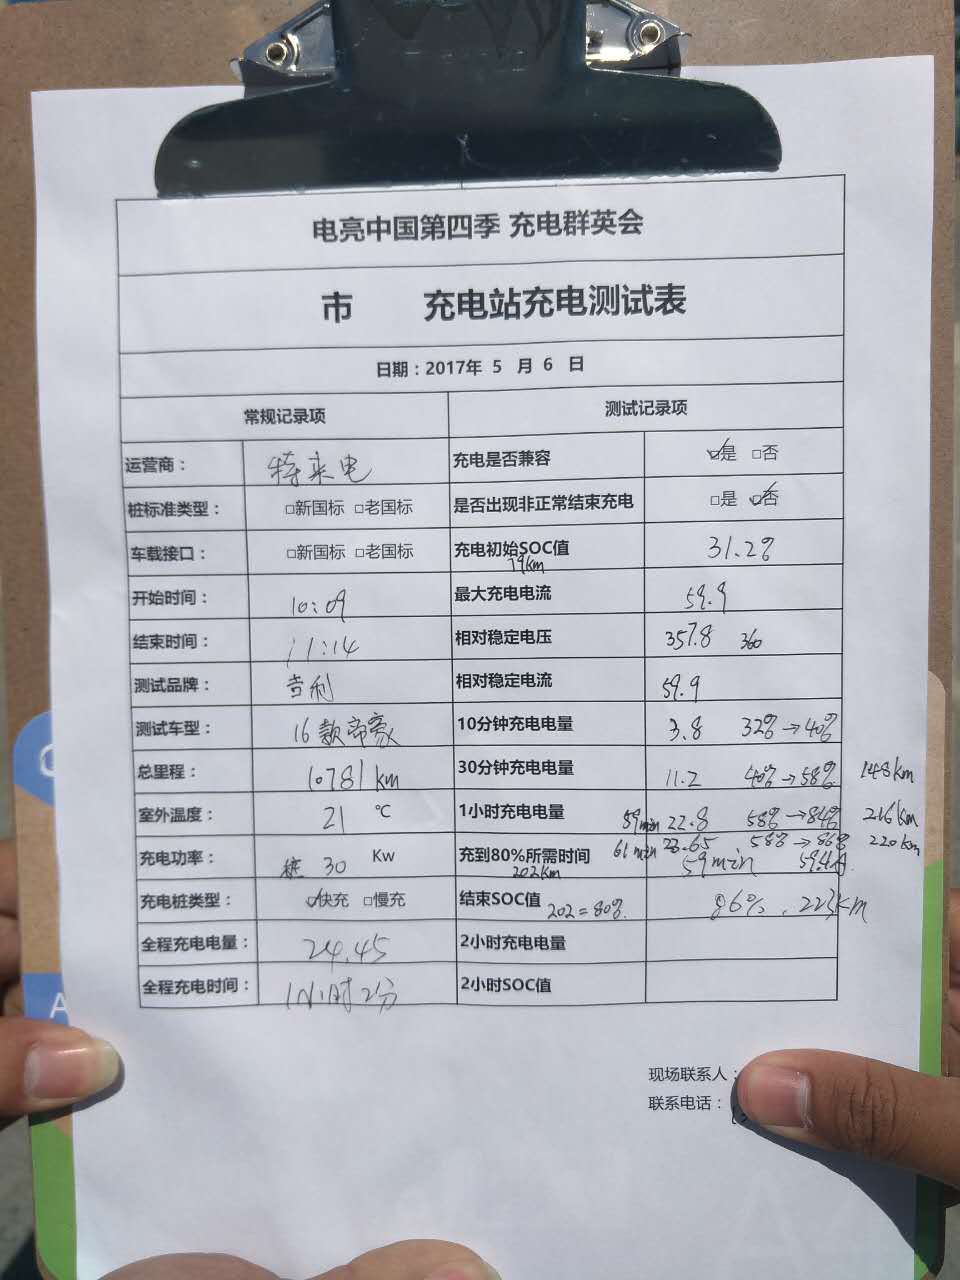 电亮中国第四季 充电群英会
市 充电站充电测试表
日期：2017年 5 月 6 日
常规记录项 测试记录项
运营商： 特来电 充电是否兼容 ☑是 □否
桩标准类型： □新国标 □老国标 是否出现非正常结束充电 □是 ☑否
车载接口： □新国标 □老国标 充电初始SOC值 31.2%
79km
开始时间： 10:09 最大充电电流 59.9
结束时间： 11:14 相对稳定电压 357.8 360
测试品牌： 吉利 相对稳定电流 59.9
测试车型： 16款帝豪 10分钟充电电量 3.8 32%→40%
总里程： 10781km 30分钟充电电量 11.2 40%→58% 148km
室外温度： 21 ℃ 1小时充电电量 59min 22.8 58%→84% 216km
61min 23.65 58%→86% 220km
充电功率： 桩 30 Kw 充到80%所需时间 59min 59.4A
202km
充电桩类型： ☑快充 □慢充 结束SOC值 202=80% 86%, 223KM
全程充电电量： 24.45 2小时充电电量
全程充电时间： 1小时2分 2小时SOC值
现场联系人：
联系电话：